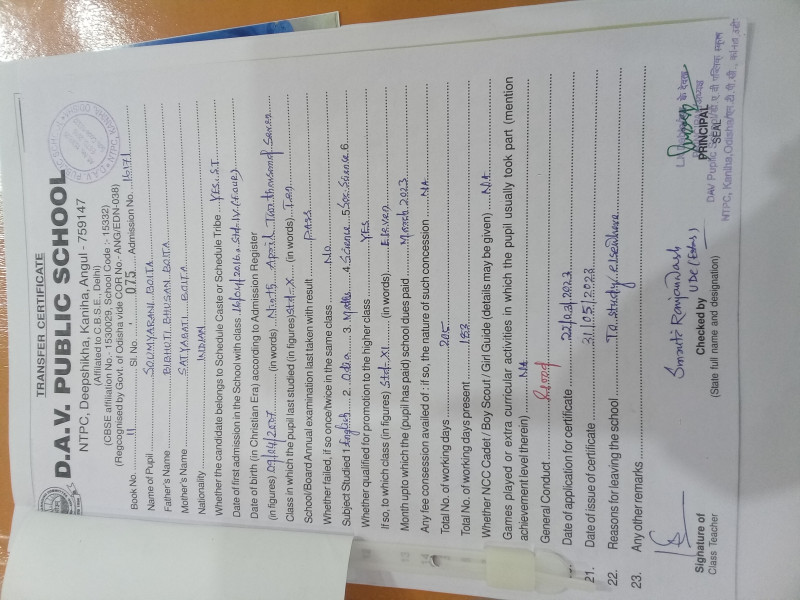 TRANSFER CERTIFICATE
D.A.V. PUBLIC SCHOOL
NTPC, Deepshikha, Kaniha, Angul - 759147
(Affiliated to C.B.S.E., Delhi)
(CBSE affiliation No.- 1530029, School Code :- 15332)
(Regcognised by Govt. of Odisha vide COR No.- ANG/EDN-038)
Book No. 11 Sl. No. 075 Admission No. 16171
Name of Pupil SOUMYARANI BOITA
Father's Name BIBHUTI BHUSAN BOITA
Mother's Name SATYABATI BOITA
Nationality INDIAN
Whether the candidate belongs to Schedule Caste or Schedule Tribe YES. S.T
Date of first admission in the School with class 16/04/2016. Std-IV (FOUR)
Date of birth (in Christian Era) according to Admission Register
(in figures) 09/04/2007 (in words) Ninth April Two thousand Seven
Class in which the pupil last studied (in figures) Std-X (in words) Ten
School/Board Annual examination last taken with result PASS
Whether failed, if so once/twice in the same class NO
Subject Studied 1. English 2. Odia 3. Maths 4. Science 5. Soc. Science 6.
Whether qualified for promotion to the higher class YES
If so, to which class (in figures) Std-XI (in words) Eleven
Month upto which the (pupil has paid) school dues paid March 2023
Any fee consession availed of : if so, the nature of such concession NA
Total No. of working days 205
Total No. of working days present 182
Whether NCC Cadet / Boy Scout / Girl Guide (details may be given) NA
Games played or extra curricular activities in which the pupil usually took part (mention
achievement level therein) NA
General Conduct Good
Date of application for certificate 22/03/2023
21. Date of issue of certificate 31/05/2023
22. Reasons for leaving the school To study elsewhere
23. Any other remarks
Signature of
Class Teacher
Smruti Ranjan Dash
Checked by UDC (Estb.)
(State full name and designation)
PRINCIPAL
SEAL
DAV Public
NTPC, Kaniha, Odisha